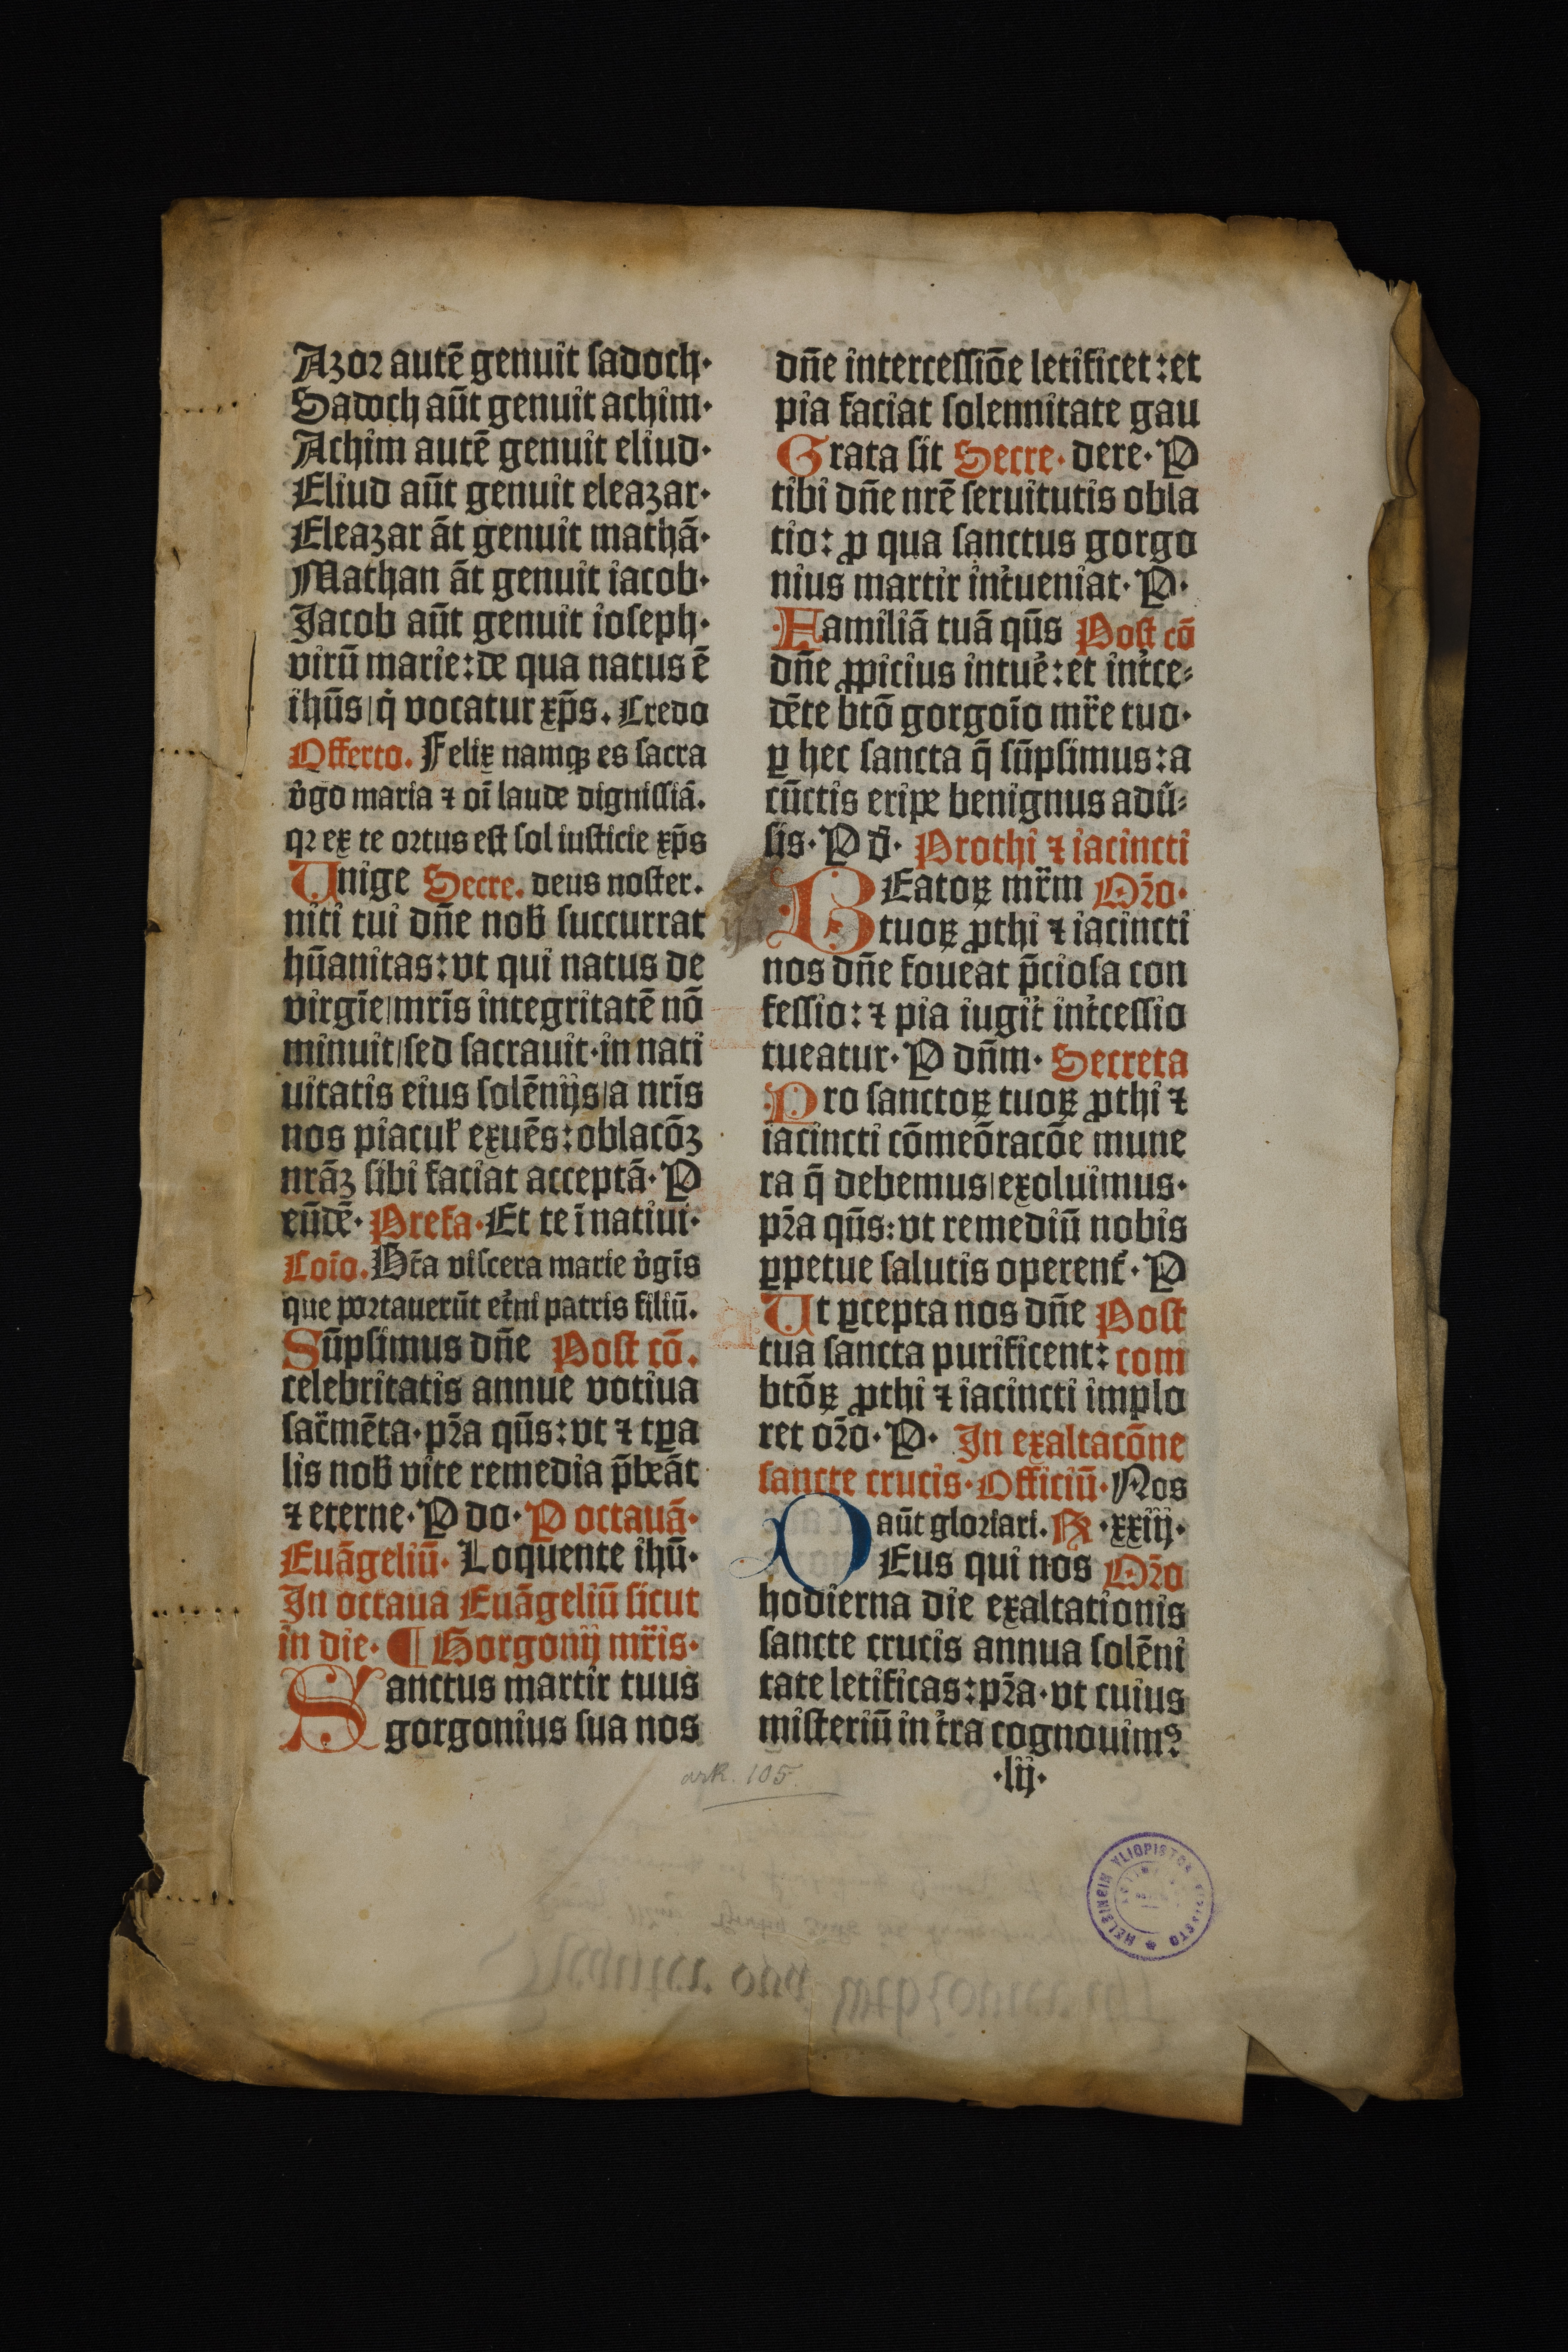 Azor autē genuit sadoch·
Sadoch aūt genuit achim·
Achim autē genuit eliud·
Eliud aūt genuit eleazar·
Eleazar āt genuit mathā·
Mathan āt genuit iacob·
Jacob aūt genuit ioseph·
virū marie: de qua natus ē
ihūs/ q̇ vocatur xp̄s. Credo
Offerto. Felix namqꝫ es sacra
v̇go maria ⁊ oī laude dignissiā.
qꝛ ex te ortus est sol iusticie xp̄s
Unige Secre. deus noster.
niti tui dn̄e nob̄ succurrat
hūanitas: vt qui natus de
virgīe/ mr̄is integritatē nō
minuit/ sed sacrauit· in nati
uitatis eius solēnijs/ a nr̄is
nos piacuł exuēs: oblacōꝫ
nrāꝫ sibi faciat acceptā· P
eūdē· Prefa· Et te ī natiui·
Coīo. Bt̄a viscera marie v̇gīs
que portauerūt et̓ni patris filiū.
Sūpsimus dn̄e Post cō.
celebritatis annue votiua
sac̄rmēta· pr̄a qūs: vt ⁊ tꝑa
lis nob̄ vite remedia p̄beāt
⁊ eterne· P do· P octauā·
Euāgeliū· Loquente ihū·
In octaua Euāgeliū sicut
in die· ¶ Gorgonij mr̄is·
Sanctus martir tuus
gorgonius sua nos
dn̄e intercessiōe letificet: et
pia faciat solennitate gau
Grata sit Secre· dere· P
tibi dn̄e nrē seruitutis obla
tio: ꝓ qua sanctus gorgo
nius martir int̓ueniat· P·
Familiā tuā qūs Post cō
dn̄e ꝓpicius intuē: et int̓ce⸗
dēte btō gorgoīo mr̄e tuo·
ꝑ hec sancta q̄ sūpsimus: a
cūctis eripe benignus adū⸗
sis· P d̄· Prothi ⁊ iacincti
BEatoꝝ mr̄m Or̄o·
tuoꝝ ꝓthi ⁊ iacincti
nos dn̄e foueat p̄ciosa con
fessio: ⁊ pia iugit̓ int̓cessio
tueatur· P dn̄m· Secreta
Pro sanctoꝝ tuoꝝ ꝓthi ⁊
iacincti cōmeōracōe mune
ra q̄ debemus/ exoluimus·
pr̄a qūs: vt remediū nobis
ꝑpetue salutis operent̓· P
Ut ꝑcepta nos dn̄e Post
tua sancta purificent: com
btōꝝ ꝓthi ⁊ iacincti implo
ret or̄o· P· In exaltacōne
sancte crucis· Officiū· Nos
aūt gloriari. R ·xxiij·
DEus qui nos Or̄o
hodierna die exaltationis
sancte crucis annua solēni
tate letificas: pr̄a· vt cuius
misteriū in t̓ra cognouimꝰ
·lij·
ark. 105.
HELSINGIN YLIOPISTON KIRJASTO